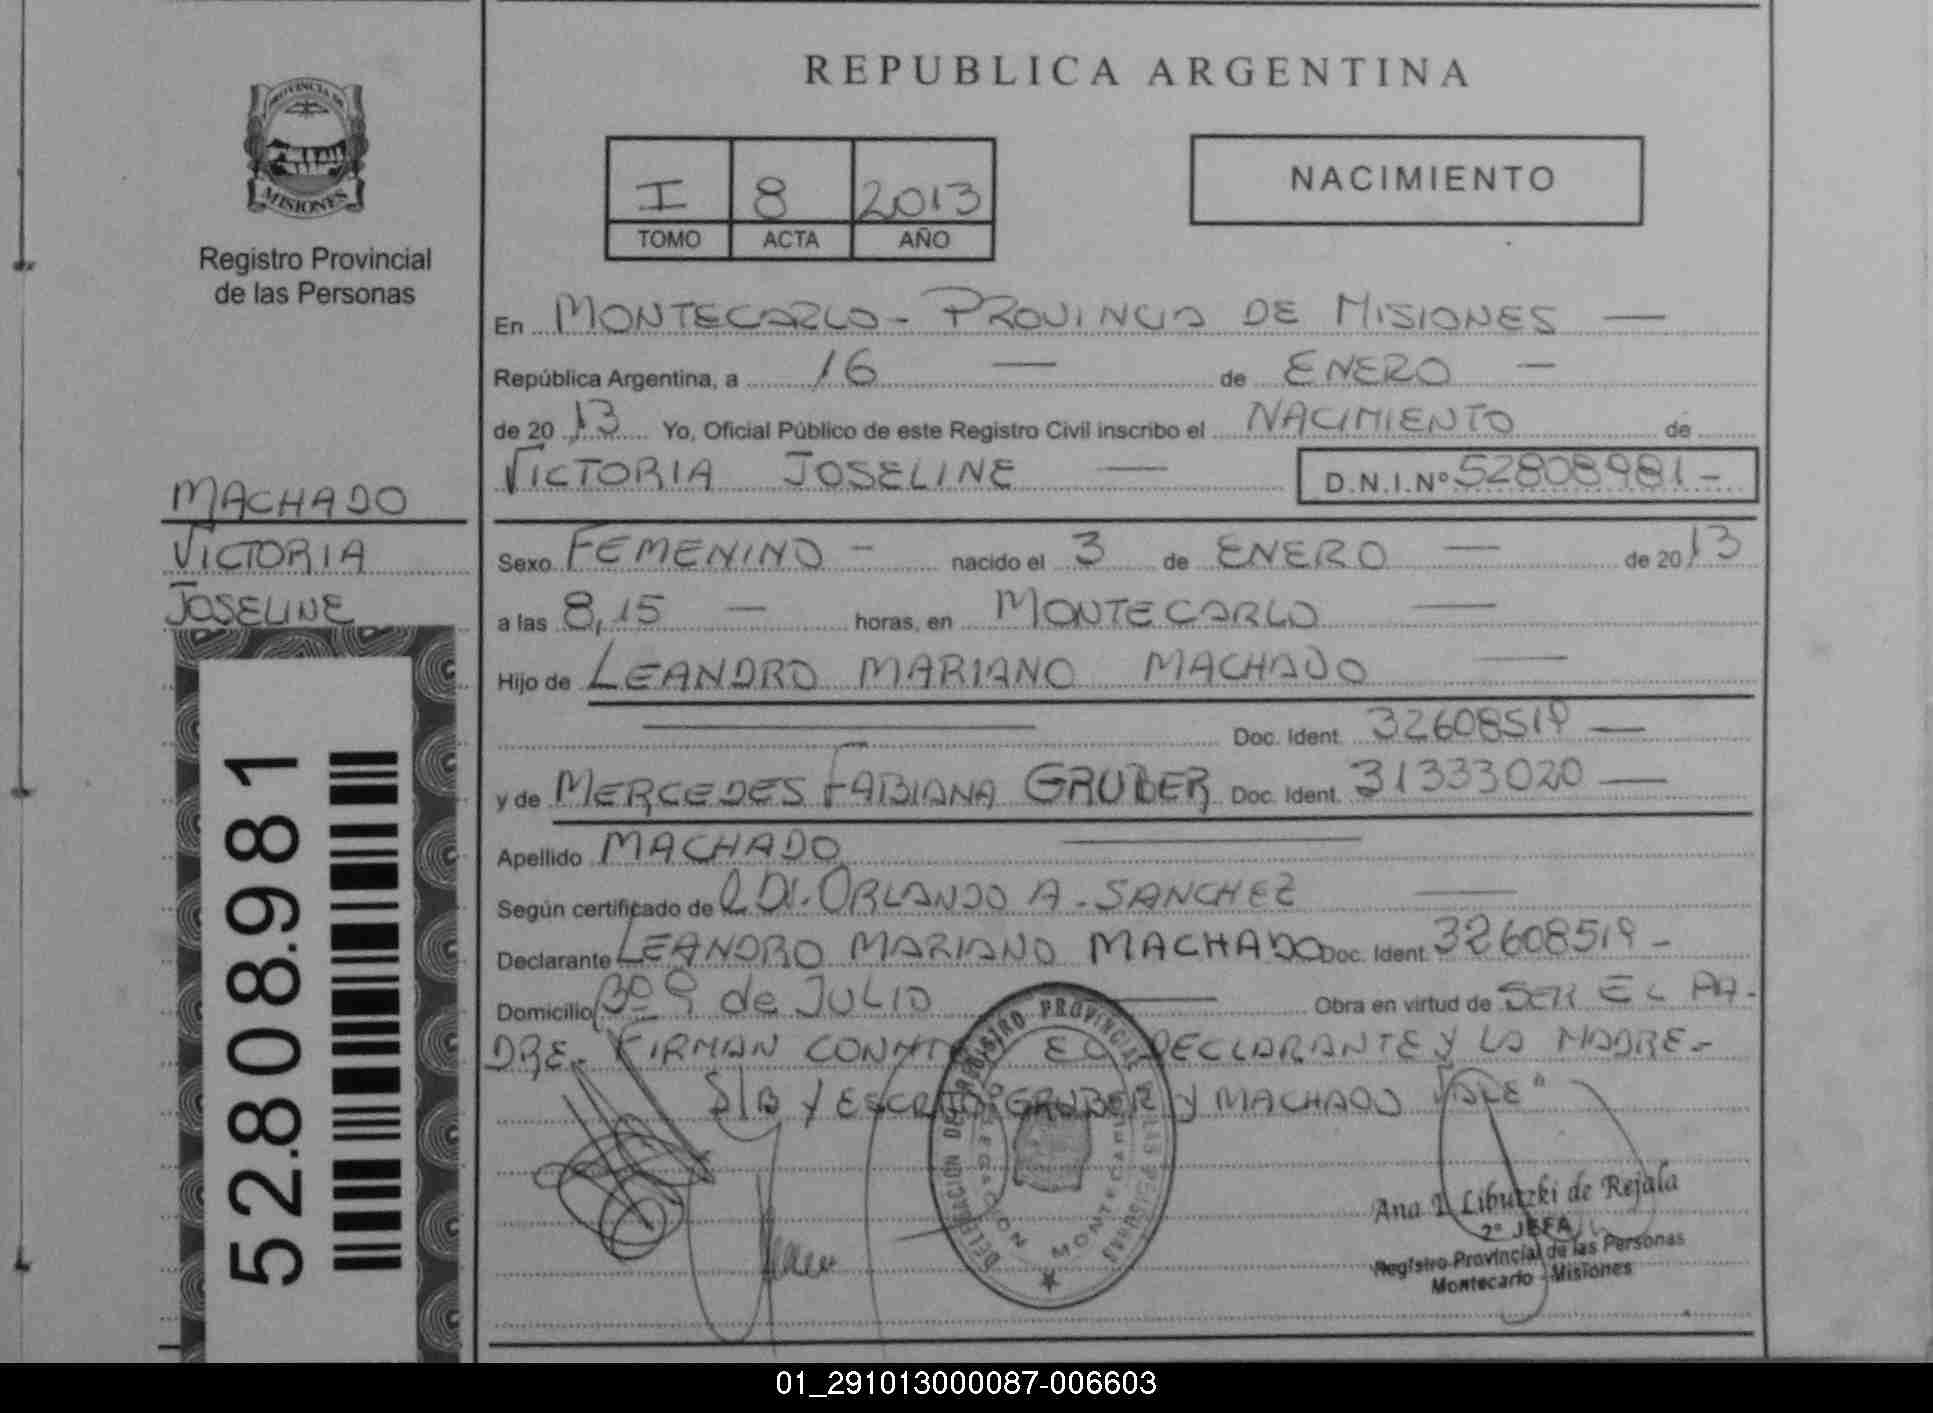 REPUBLICA ARGENTINA
PROVINCIA DE
MISIONES
Registro Provincial
de las Personas
I 8 2013
TOMO ACTA AÑO
NACIMIENTO
En MONTECARLO - PROVINCIA DE MISIONES —
República Argentina, a 16 — de ENERO —
de 2013 Yo, Oficial Público de este Registro Civil inscribo el NACIMIENTO de
VICTORIA JOSELINE — D.N.I.Nº 52808981 -
MACHADO
VICTORIA
JOSELINE
52.808.981
Sexo FEMENINO - nacido el 3 de ENERO — de 2013
a las 8,15 — horas, en MONTECARLO —
Hijo de LEANDRO MARIANO MACHADO —
Doc. Ident. 32608519 —
y de MERCEDES FABIANA GRUBER Doc. Ident. 31333020 —
Apellido MACHADO —
Según certificado de ORLANDO A. SANCHEZ —
Declarante LEANDRO MARIANO MACHADO Doc. Ident. 32608519 -
Domicilio Bº 9 de JULIO — Obra en virtud de SER EL PA-
DRE. FIRMAN CONMIGO EL DECLARANTE Y LA MADRE -
S/B Y ESCRITO GRUBER Y MACHADO VALE"
DELEGACIÓN MONTECARLO
Ana I. Libutzki de Rejala
2º JEFA
Registro Provincial de las Personas
Montecarlo - Misiones
01_291013000087-006603